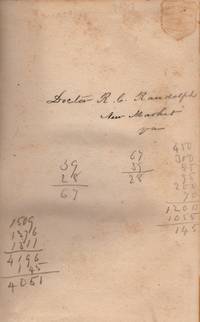 Doctor R. C. Randolph
New Market
Va
39
28
67
67
39
28
1200
1055
145
1509
1376
1311
4196
145
4051